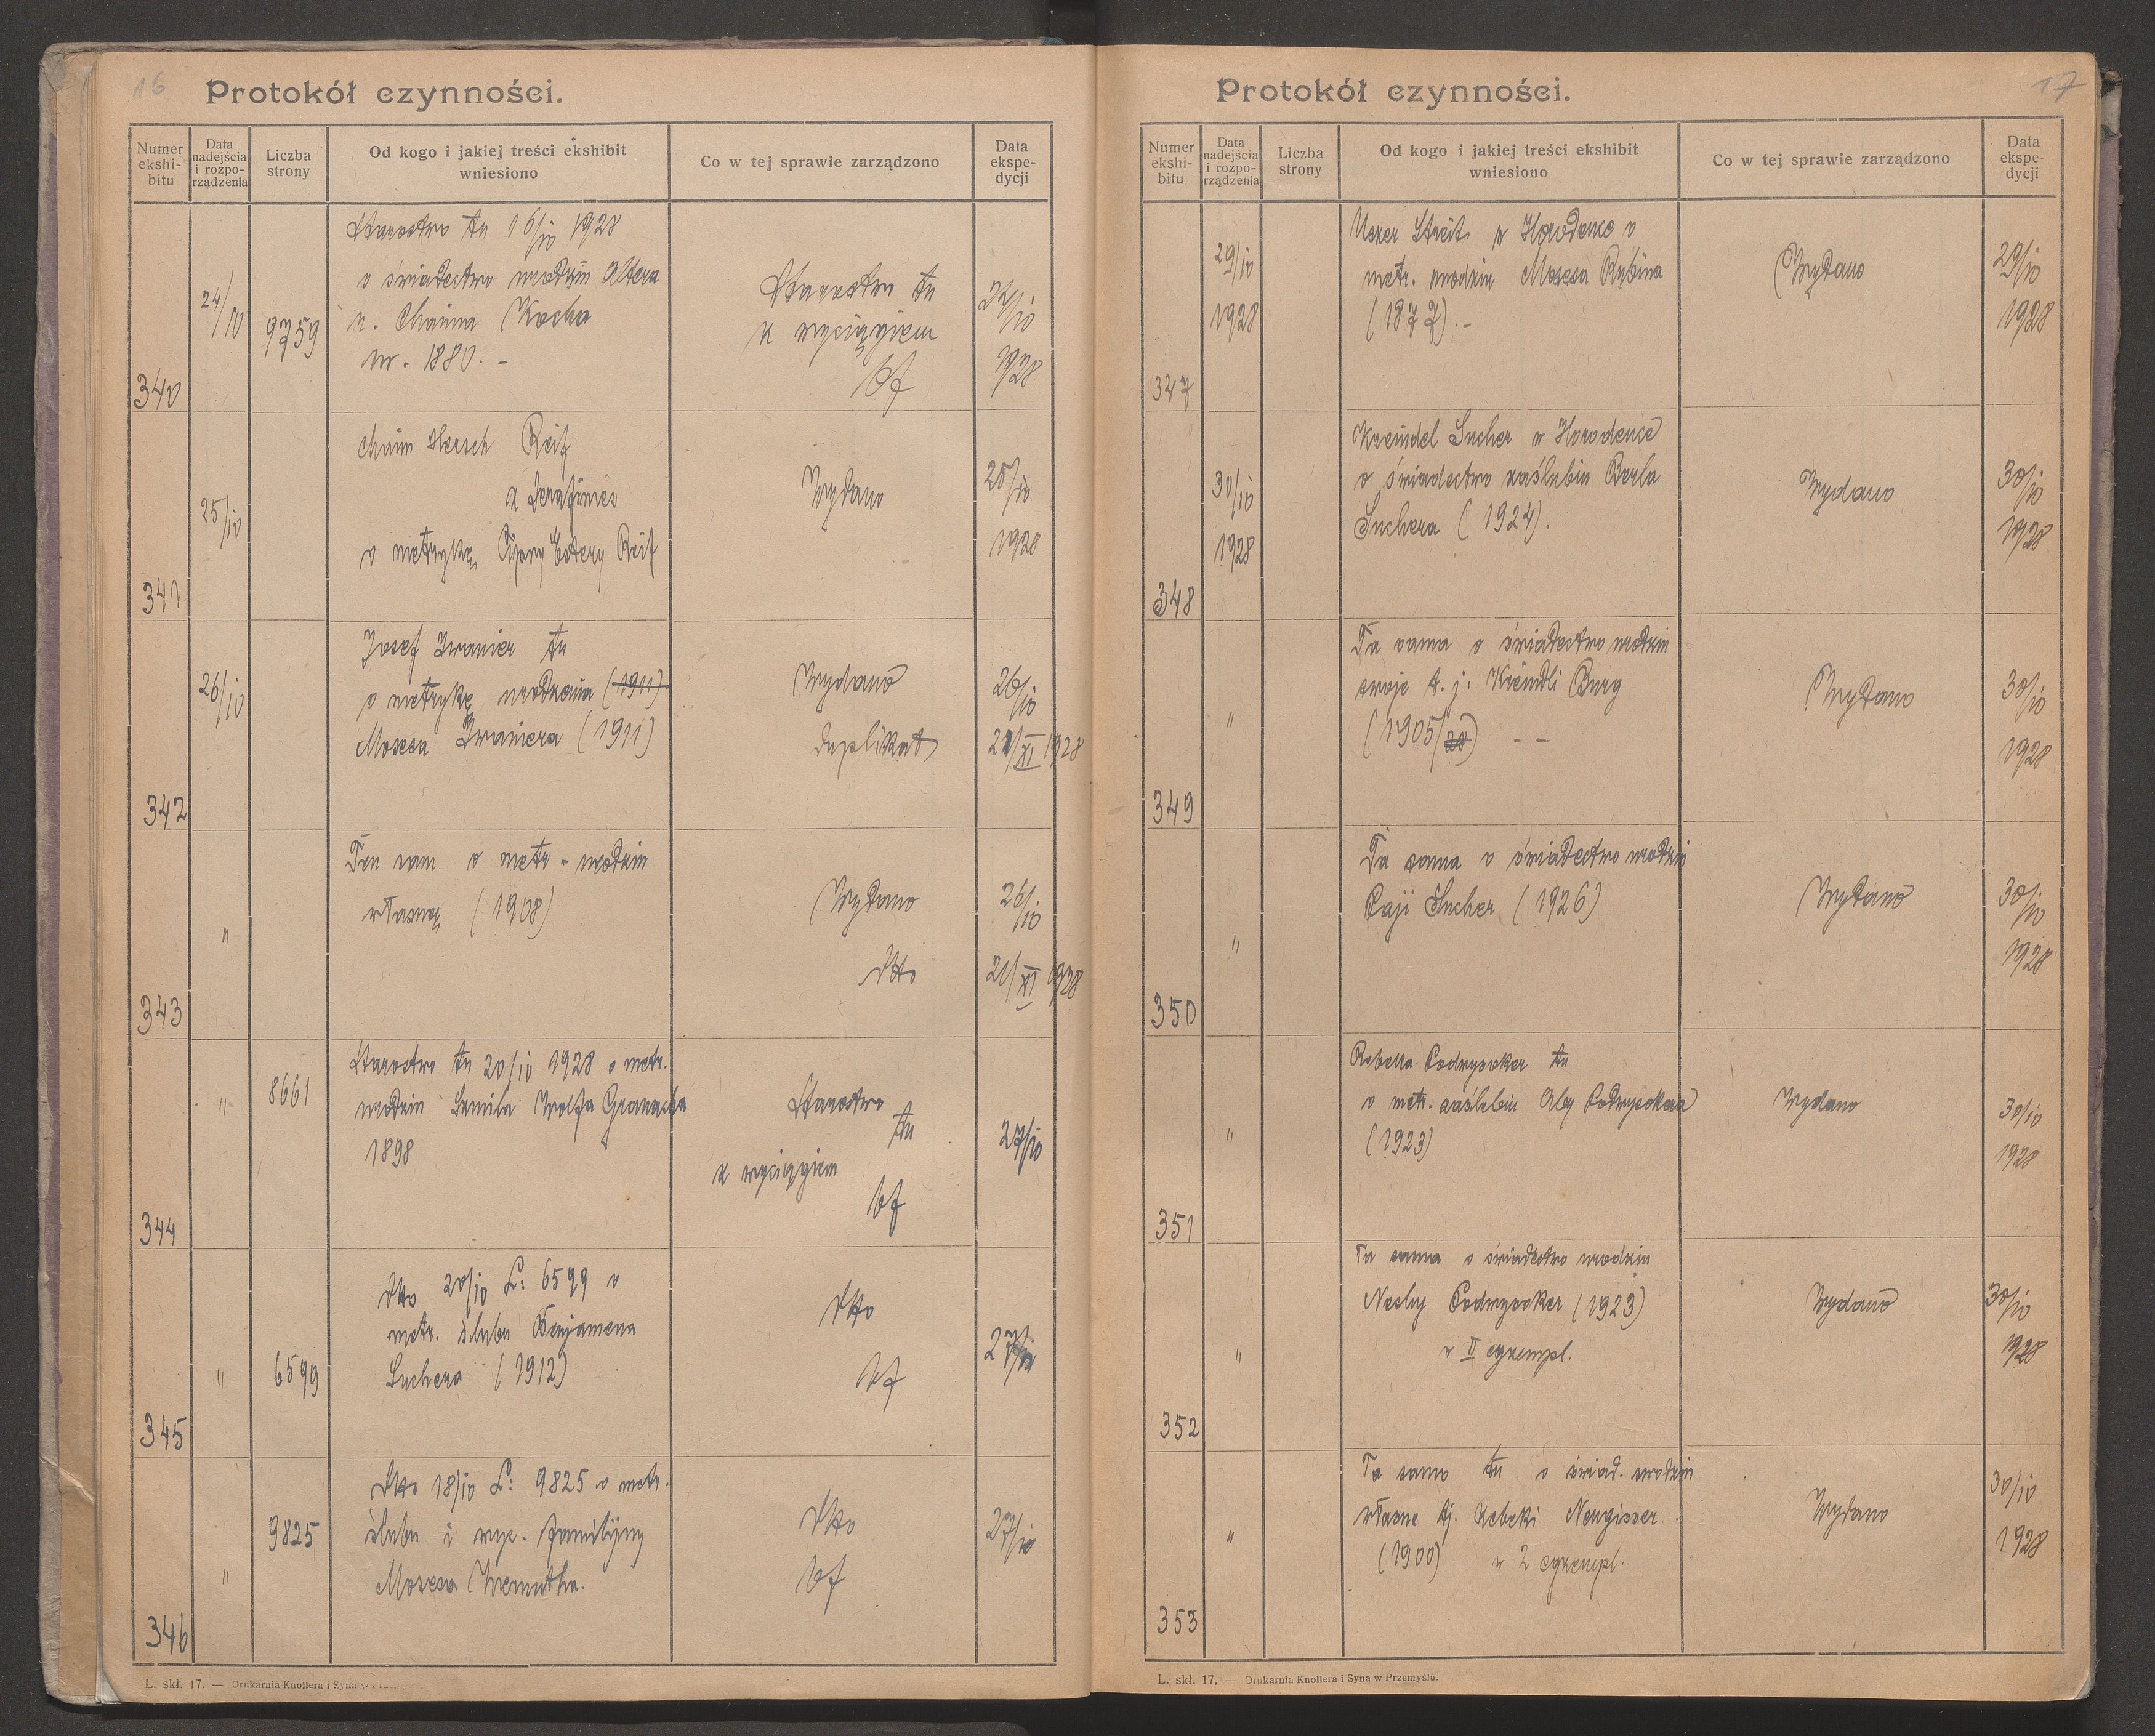 16
Protokół czynności.
Numer ekshi-bitu
Data nadejścia i rozpo-rządzenia
Liczba strony
Od kogo i jakiej treści ekshibit wniesiono
Co w tej sprawie zarządzono
Data ekspe-dycji
Starostwo tu 16/10 1928
o świadectwo urodzin Altera
v. Chaima Kocha
nr. 1880. -
24/10
9759
Starostwu tu
z wyciągiem
bf
24/10
1928
340
Chaim Hersch Reif
z Serafiniec
o metrykę Estery Reif
25/10
Wydano
25/10
1928
341
Josef Iwanier tu
o metrykę urodzenia (1911)
Mosesa Iwaniera (1911)
26/10
Wydano
duplikat
26/10
21/XI 1928
342
Ten sam o metr. urodzin
własną (1908)
"
Wydano
dtto
26/10
21/XI 1928
343
Starostwo tu 20/10 1928 o metr.
urodzin Wolfa
1898
"
8661
Starostwu
tu
z wyciągiem
bf
27/10
344
dto 20/10 L: 6599 o
metr. ślubu Benjamena
Suchera (1912)
"
6599
dtto
bf
27/10
345
dtto 18/10 L: 9825 o metr.
ślubu i wyc. familijny
Mosesa Wermutha.
"
9825
dtto
bf
27/10
346
L. skł. 17. — Drukarnia Knollera i Syna w
17
Protokół czynności.
Numer ekshi-bitu
Data nadejścia i rozpo-rządzenia
Liczba strony
Od kogo i jakiej treści ekshibit wniesiono
Co w tej sprawie zarządzono
Data ekspe-dycji
Uszer Streit w Horodence o
metr. urodzin Mosesa Rubina
(1877).-
29/10
1928
Wydano
29/10
1928
347
Kreindel Sucher w Horodence
o świadectwo zaślubin Berla
Suchera (1924).
30/10
1928
Wydano
30/10
1928
348
Ta sama o świadectwo urodzin
swoje t. j. Burg
(1905/28) - -
"
Wydano
30/10
1928
349
Ta sama o świadectwo urodzin
Sucher (1926)
"
Wydano
30/10
1928
350
Podwysoker tu
o metr. zaślubin Podwysokera
(1923)
"
Wydano
30/10
1928
351
Ta sama o świadectwo urodzin
Nechy Podwysoker (1923)
w II egzempl.
"
Wydano
30/10
1928
352
Ta sama tu o świad. urodzin
własne tj. Rebeki Neugisser
(1900) w 2 egzempl.
"
Wydano
30/10
1928
353
L. skł. 17. — Drukarnia Knollera i Syna w Przemyślu.